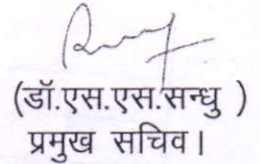 (डॉ.एस.एस.सन्धु )
प्रमुख सचिव।